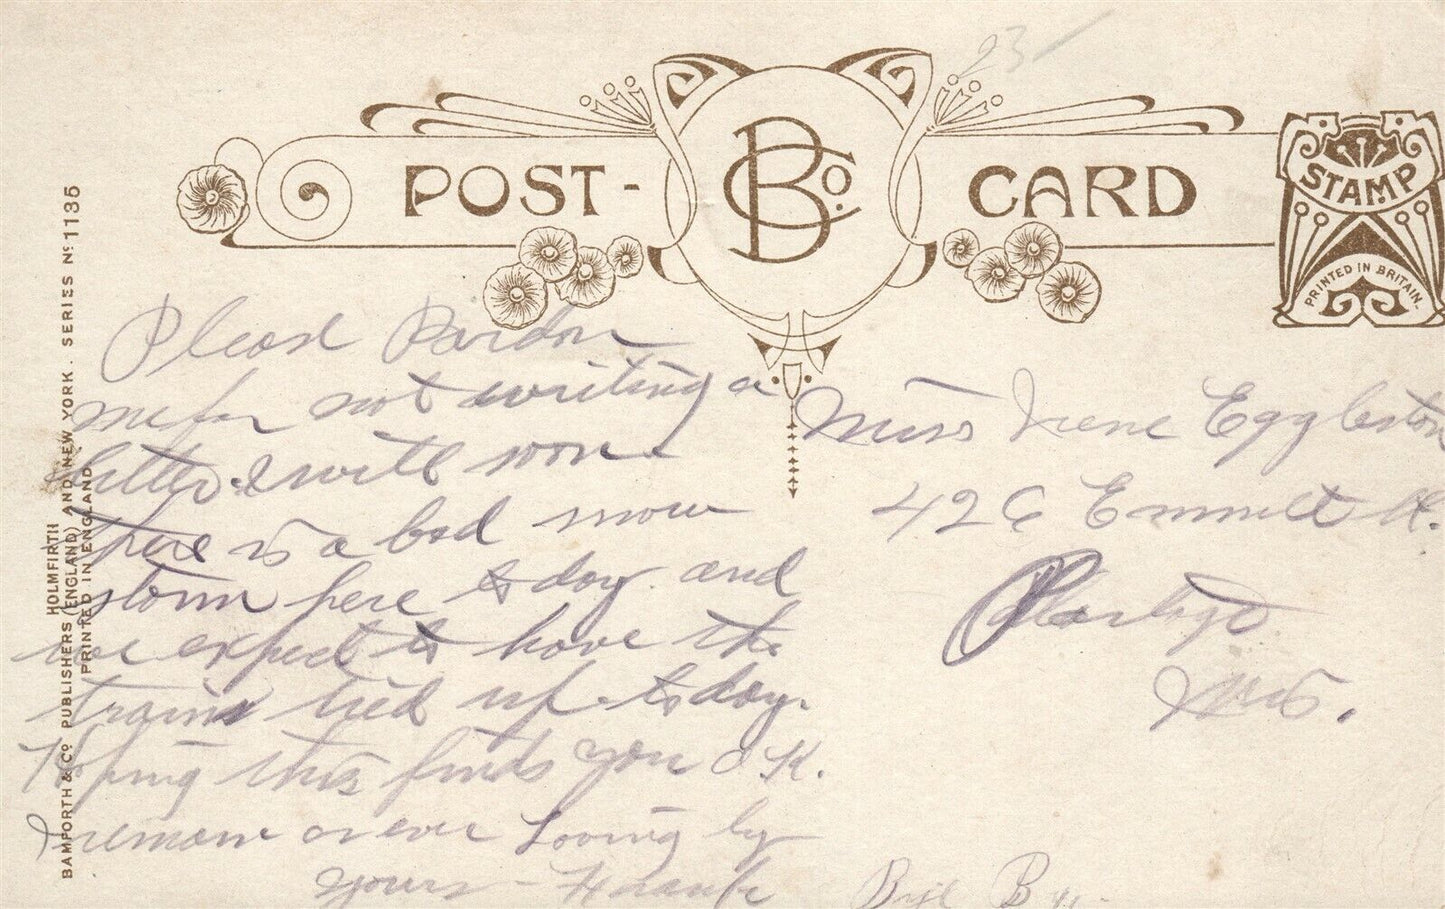 23
POST-CARD
BCo.
STAMP
PRINTED IN BRITAIN.
BAMFORTH & Co PUBLISHERS (ENGLAND) AND NEW YORK. SERIES No 1135
HOLMFIRTH
PRINTED IN ENGLAND
Pleasd Pardon
me for not writing a
letter. I will soon
there is a bad snow
storm here to day. and
we expect to have the
trains tied up to day.
Hoping this finds you O.K.
I remain as ever Loving ly
yours - Frank
Bye By.
Miss Irene Eggleston
426 Emmett St.
Portage
Wis.